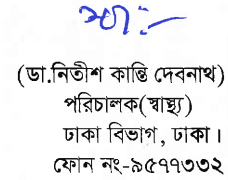 স্বাঃ-
(ডা.নিতীশ কান্তি দেবনাথ)
পরিচালক(স্বাস্থ্য)
ঢাকা বিভাগ, ঢাকা।
ফোন নং-৯৫৭৭৩৩২